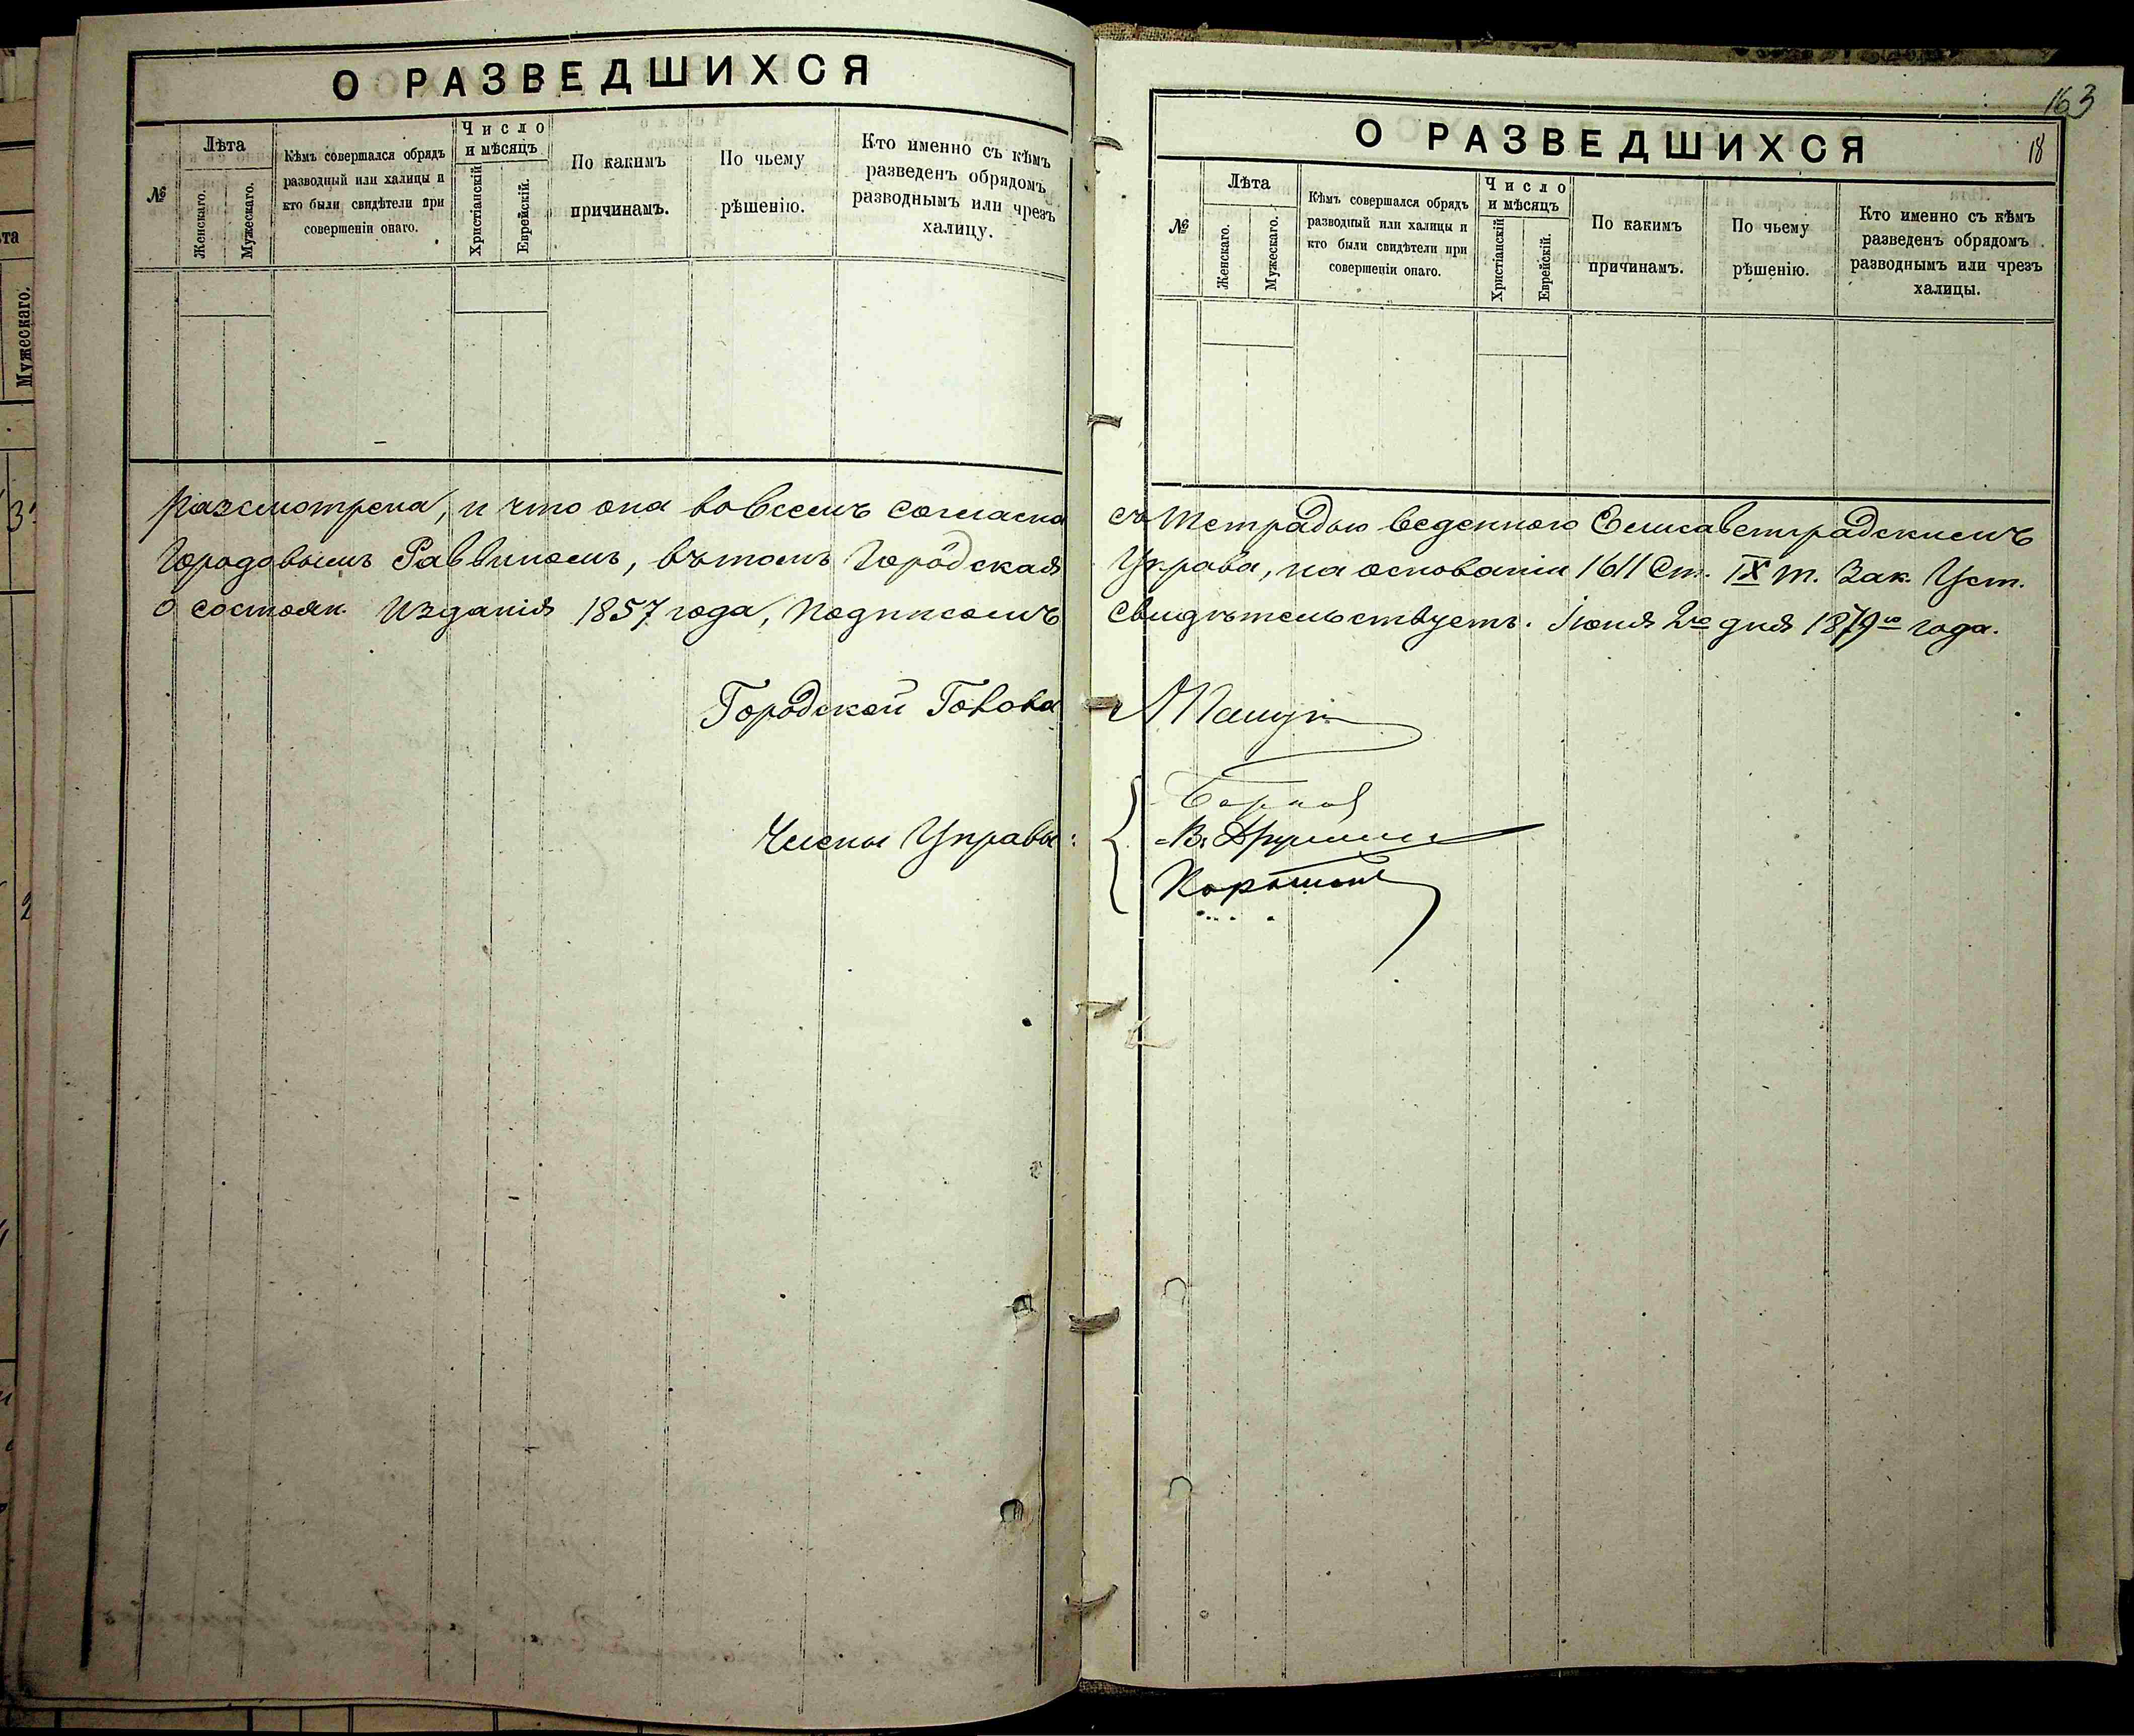 О РАЗВЕДШИХСЯ
№
Лѣта
Женскаго.
Мужескаго.
Кѣмъ совершался обрядъ
разводный или халицы и
кто были свидѣтели при
совершеніи онаго.
Число
и мѣсяцъ
Христіанскій
Еврейскій.
По какимъ
причинамъ.
По чьему
рѣшенію.
Кто именно съ кѣмъ
разведенъ обрядомъ
разводнымъ или чрезъ
халицу.
разсмотрена, и что она во всемъ согласна
Городовымъ Раввиномъ, въ томъ Городская
о состоян. Изданія 1857 года, подписомъ
Городской Голова
Члены Управы:
163
18
О РАЗВЕДШИХСЯ
№
Лѣта
Женскаго.
Мужескаго.
Кѣмъ совершался обрядъ
разводный или халицы и
кто были свидѣтели при
совершеніи онаго.
Число
и мѣсяцъ
Христіанскій
Еврейскій.
По какимъ
причинамъ.
По чьему
рѣшенію.
Кто именно съ кѣмъ
разведенъ обрядомъ
разводнымъ или чрезъ
халицы.
съ тетрадью веденною Елисаветградскимъ
Управа, на основаніи 1611 Ст. IX т. Зак. Уст.
свидѣтельствуетъ. Іюня 2го дня 1879го года.
та
Мужескаго.